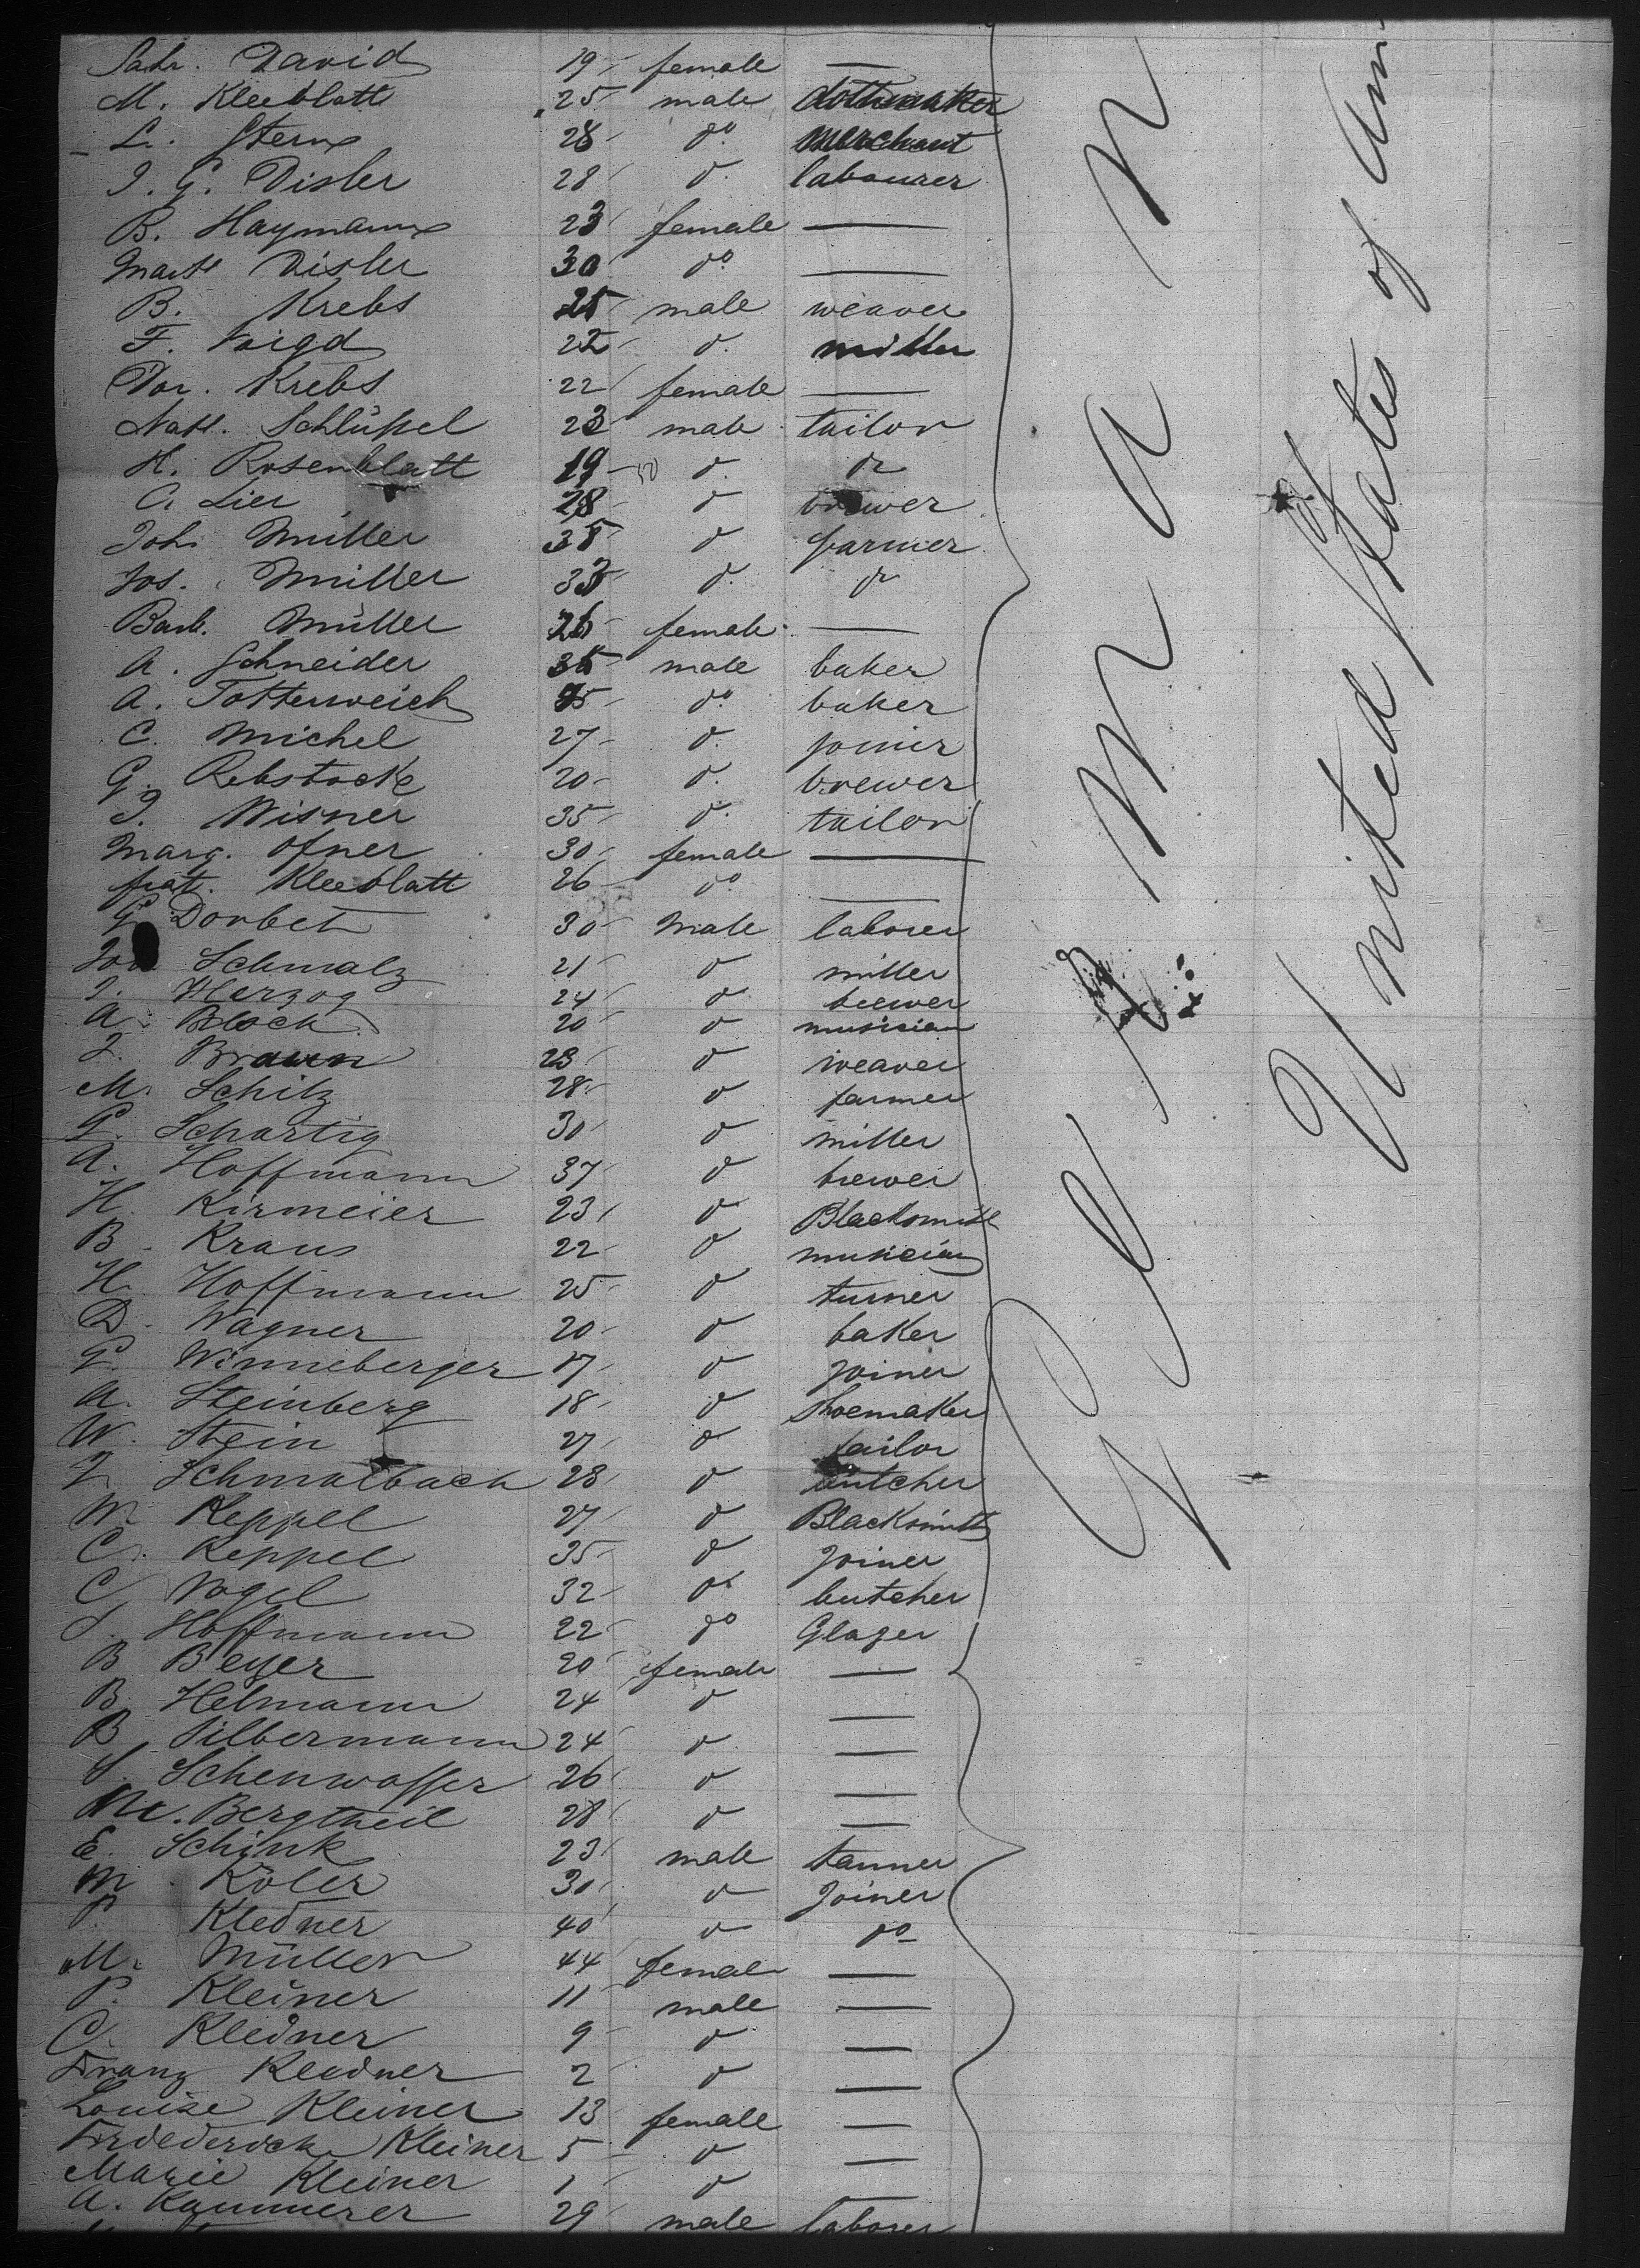 David 19 female —
M. Kleeblatt 25 male
L. Stern 28 do merchant
J. G. Disler 28 do labourer
B. Haymann 23 female —
Disler 30 do —
B. Krebs 25 male weaver
F. Voigd 22 do miller
Dor. Krebs 22 female —
Nath. Schlüssel 23 male tailor
H. Rosenblatt 19 do do
A. Lier 28 do brewer
Joh. Müller 35 do farmer
Jos. Müller do do
Barb. Müller 26 female —
A. Schneider male baker
A. Totterweich do baker
C. Michel 27 do joiner
G. Rebstock 20 do brewer
J. Wisner 35 do tailor
Marg. Ofner 30 female —
Kleeblatt 26 do —
G. Dorbet 30 male laborer
Schmalz 21 do miller
J. Herzog 24 do brewer
A. Block 20 do musician
Braun 23 do weaver
M. Schilz 28 do farmer
G. Schartig 30 do miller
A. Hoffmann 37 do brewer
H. Kirmeier 23 do Blacksmith
B. Kraus 22 do musician
H. Hoffmann 25 do turner
D. Wagner 20 do baker
G. Winneberger 17 do Joiner
A. Steinberg 18 do Shoemaker
W. Stein 27 do tailor
Schmalbach 28 do butcher
W. Keppel 27 do Blacksmith
C. Keppel 35 do Joiner
C. Vogel 32 do butcher
Hoffmann 22 do Glazer
B Beyer 20 female —
B. Helmann 24 do —
B Silbermann 24 do —
S. Schenwasser 26 do —
M. Bergtheil 28 do —
E. Schink 23 male tanner
M. Köler 30 do Joiner
P. Kleiner 40 do do
M. Müller 44 female —
P. Kleiner 11 male —
C. Kleiner 9 do —
Franz Kleiner 2 do —
Louise Kleiner 13 female —
Friedericke Kleiner 5 do —
Marie Kleiner 1 do —
A. Kammerer 29 male laborer
German
United States of Am